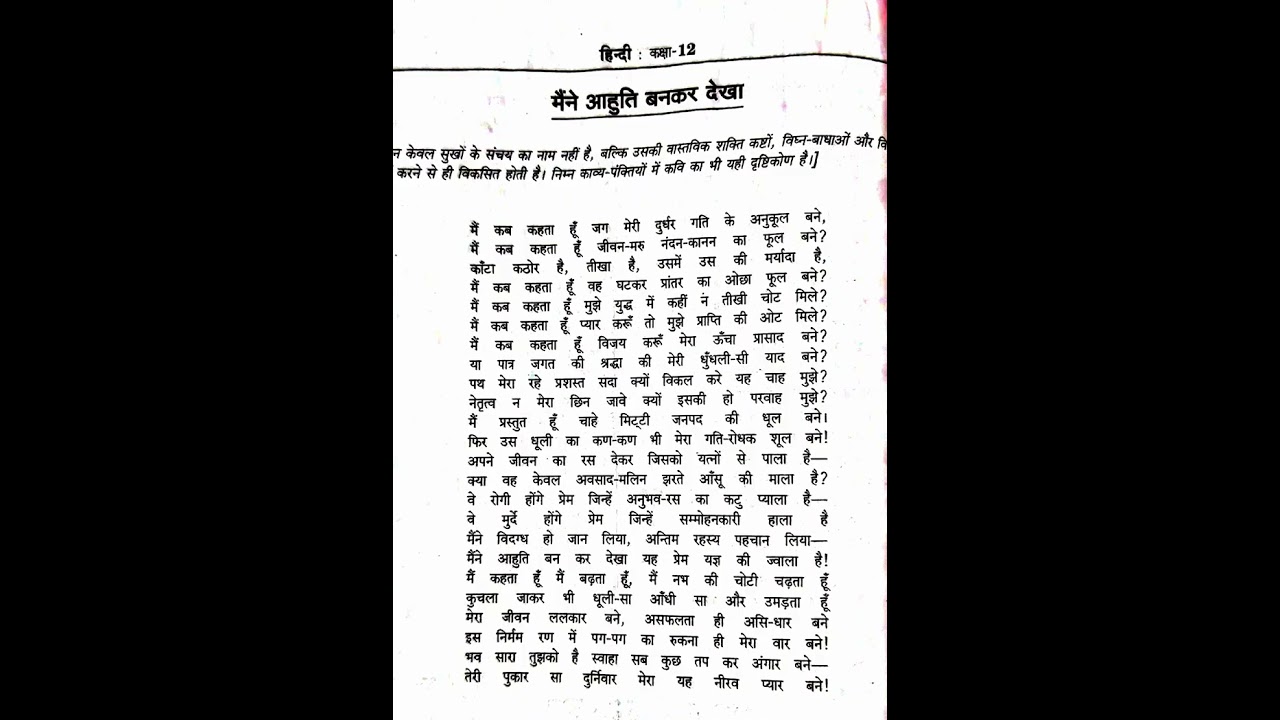 हिन्दी : कक्षा-12
मैंने आहुति बनकर देखा
न केवल सुखों के संचय का नाम नहीं है, बल्कि उसकी वास्तविक शक्ति कष्टों, विघ्न-बाधाओं और वि
करने से ही विकसित होती है। निम्न काव्य-पंक्तियों में कवि का भी यही दृष्टिकोण है।]
मैं कब कहता हूँ जग मेरी दुर्धर गति के अनुकूल बने,
मैं कब कहता हूँ जीवन-मरु नंदन-कानन का फूल बने?
काँटा कठोर है, तीखा है, उसमें उस की मर्यादा है,
मैं कब कहता हूँ वह घटकर प्रांतर का ओछा फूल बने?
मैं कब कहता हूँ मुझे युद्ध में कहीं न तीखी चोट मिले?
मैं कब कहता हूँ प्यार करूँ तो मुझे प्राप्ति की ओट मिले?
मैं कब कहता हूँ विजय करूँ मेरा ऊँचा प्रासाद बने?
या पात्र जगत की श्रद्धा की मेरी धुँधली-सी याद बने?
पथ मेरा रहे प्रशस्त सदा क्यों विकल करे यह चाह मुझे?
नेतृत्व न मेरा छिन जावे क्यों इसकी हो परवाह मुझे?
मैं प्रस्तुत हूँ चाहे मिट्टी जनपद की धूल बने।
फिर उस धूली का कण-कण भी मेरा गति-रोधक शूल बने!
अपने जीवन का रस देकर जिसको यत्नों से पाला है—
क्या वह केवल अवसाद-मलिन झरते आँसू की माला है?
वे रोगी होंगे प्रेम जिन्हें अनुभव-रस का कटु प्याला है—
वे मुर्दे होंगे प्रेम जिन्हें सम्मोहनकारी हाला है
मैंने विदग्ध हो जान लिया, अन्तिम रहस्य पहचान लिया—
मैंने आहुति बन कर देखा यह प्रेम यज्ञ की ज्वाला है!
मैं कहता हूँ मैं बढ़ता हूँ, मैं नभ की चोटी चढ़ता हूँ
कुचला जाकर भी धूली-सा आँधी सा और उमड़ता हूँ
मेरा जीवन ललकार बने, असफलता ही असि-धार बने
इस निर्मम रण में पग-पग का रुकना ही मेरा वार बने!
भव सारा तुझको है स्वाहा सब कुछ तप कर अंगार बने—
तेरी पुकार सा दुर्निवार मेरा यह नीरव प्यार बने!